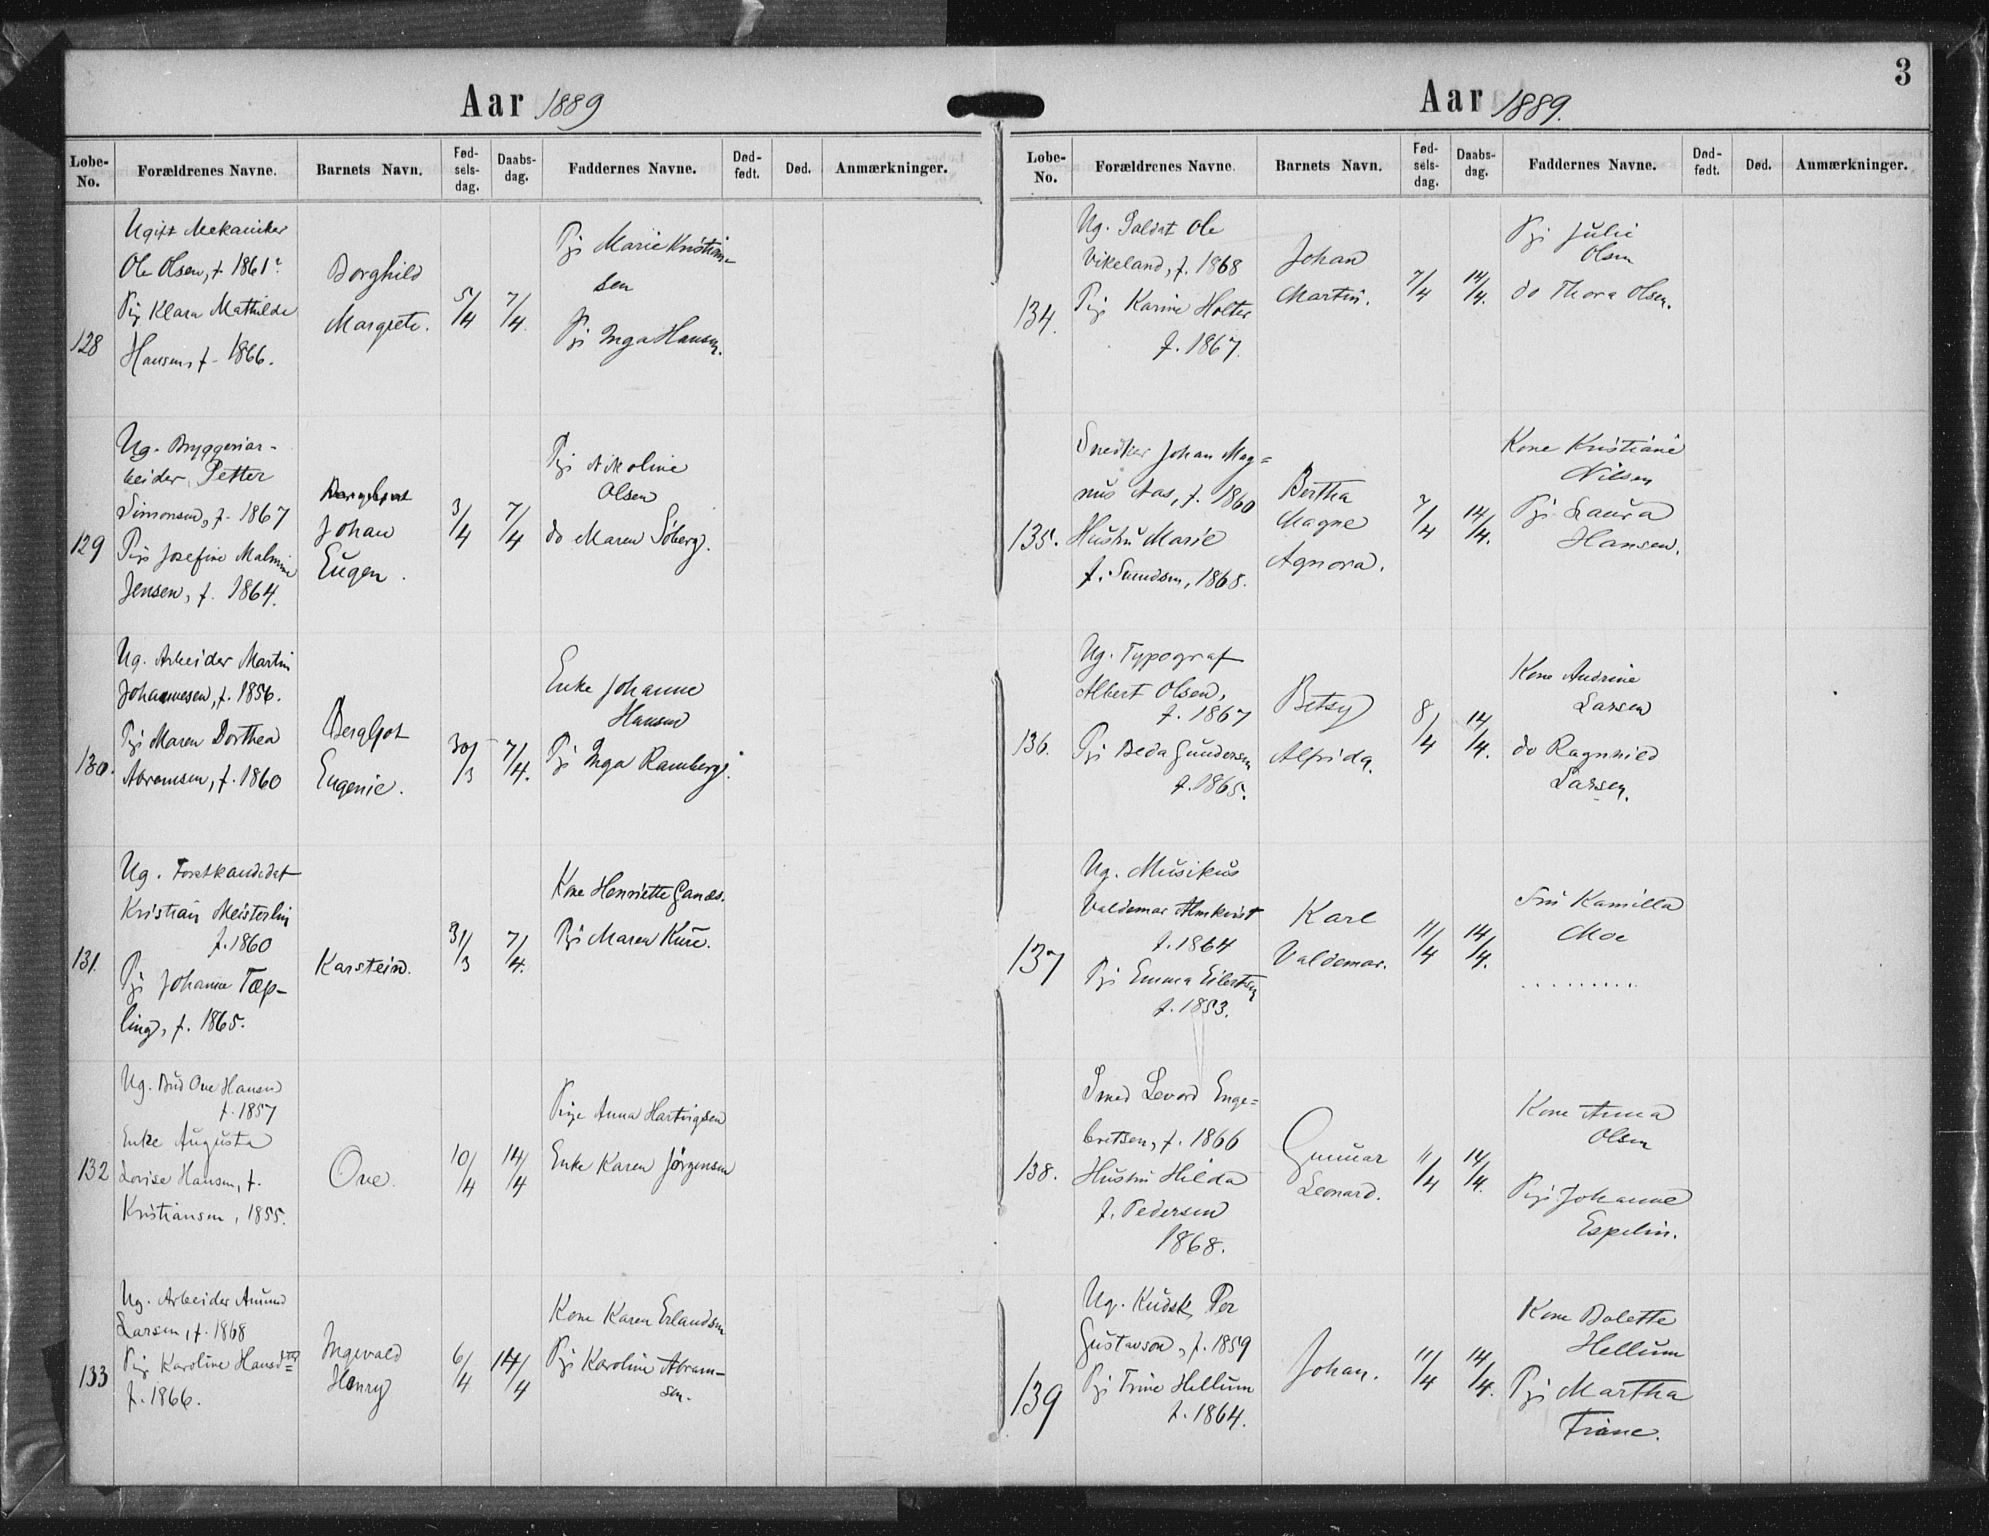 3
Aar 1889
Lobe-No. Forældrenes Navne. Barnets Navn. Fød-sels-dag. Daabs-dag. Faddernes Navne. Død-født. Død. Anmærkninger.
128
Ugift Mekaniker
Ole Olsen, f. 1861
Pig Klara Mathilde
Hansen, f. 1866.
Borghild
Margrete.
5/4
7/4.
Pje Marie Kristian-
sen
Pje Inga Hansen.
129
Ug. Bryggeriar-
beider, Petter
Simonsen, f. 1867
Pige Josefine Malmine
Jensen, f. 1864.
Johan
Eugen.
3/4
7/4
Pige Nikoline
Olsen
do Maren Söberg.
130.
Ug. Arbeider Martin
Johannesen, f. 1856.
Pige Maren Dorthea
Abramsen, f. 1860
Bergljot
Eugenie.
30/3
7/4.
Enke Johanne
Hansen
Pje Inga Ramberg.
131.
Ug. Forstkandidat
Kristian Meisterlin
f. 1860
Pje Johanne Tæp-
ling, f. 1865.
Karstein.
31/3
7/4.
Kone Henriette Gandes.
Pje Maren Kure.
132
Ug. Bud Ove Hansen
f. 1857
Enke Augusta
Lovise Hansen, f.
Kristiansen, 1855.
Ove.
10/4
14/4
Pige Anna Hartvigsen
Enke Karen Jørgensen
133
Ug. Arbeider Amund
Larsen, f. 1868
Pig Karoline Hansdtr
f. 1866.
Ingevald
Henry
6/4
14/4
Kone Karen Erlandsen
Pje Karoline Abram-
sen.
Aar 1889.
Lobe-No. Forældrenes Navne. Barnets Navn. Fød-sels-dag. Daabs-dag. Faddernes Navne. Død-født. Død. Anmærkninger.
134.
Ug. Soldat Ole
Vikeland, f. 1868
Pige Karine Holter
f. 1867.
Johan
Martin.
7/4
14/4.
Pje Julie
Olsen
do Thora Olsen.
135.
Snedker Johan Mag=
nus Aas, f. 1860
Hustru Marie
f. Sundsen, 1868.
Bertha
Magne
Agnora.
7/4
14/4.
Kone Kristiane
Nilsen
Pje Laura
Hansen.
136.
Ug. Typograf
Albert Olsen,
f. 1867
Pje Beda Gundersen
f. 1865.
Betsy
Alfrida.
8/4
14/4.
Kone Andrine
Larsen
do Ragnhild
Larsen.
137
Ug. Musikus
Valdemar Almkvist
f. 1864
Pje Emma Eilertsen
f. 1853.
Karl
Valdemar.
11/4
14/4.
Fru Kamilla
Moe
.........
138.
Smed Levord Enge=
bretsen, f. 1866
Hustru Hilda
f. Pedersen
1868.
Gunnar
Leonard.
11/4
14/4.
Kone Anna
Olsen
Pige Johanne
Espelin.
139
Ug. Kudsk, Per
Gustavson, f. 1859
Pje Trine Hellum
f. 1864.
Johan.
11/4
14/4.
Kone Dolette
Hellum
Pje Martha
Friane.